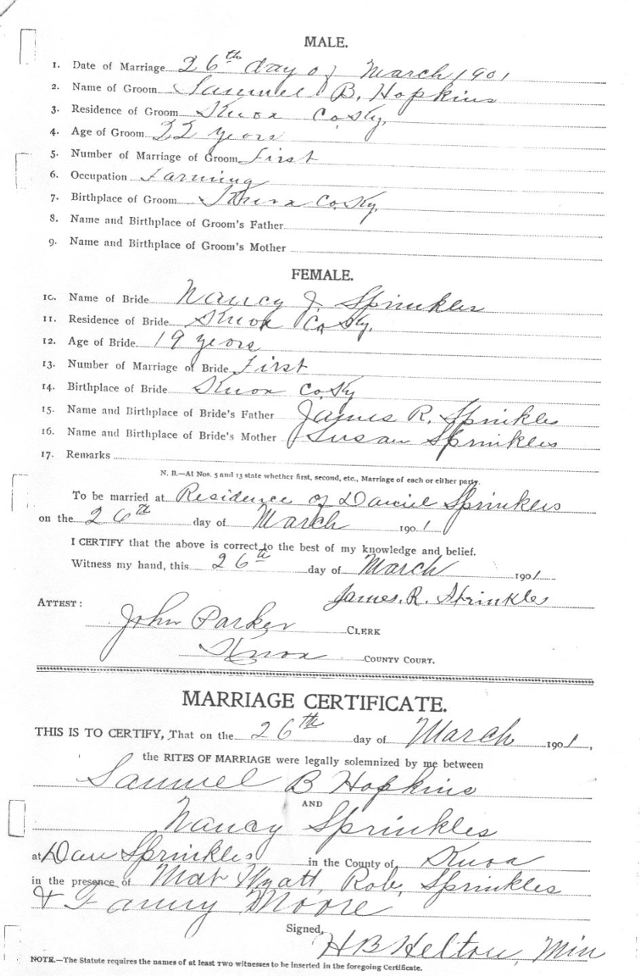 MALE.
1. Date of Marriage 26th day of March 1901
2. Name of Groom Samuel B. Hopkins
3. Residence of Groom Knox Co. Ky.
4. Age of Groom 22 years
5. Number of Marriage of Groom First
6. Occupation Farming
7. Birthplace of Groom Knox Co. Ky.
8. Name and Birthplace of Groom's Father
9. Name and Birthplace of Groom's Mother
FEMALE.
10. Name of Bride Nancy J. Sprinkles
11. Residence of Bride Knox Co. Ky.
12. Age of Bride 19 years
13. Number of Marriage of Bride First
14. Birthplace of Bride Knox Co Ky
15. Name and Birthplace of Bride's Father James R. Sprinkles
16. Name and Birthplace of Bride's Mother Susan Sprinkles
17. Remarks
N. B.—At Nos. 5 and 13 state whether first, second, etc., Marriage of each or either party.
To be married at Residence of Daniel Sprinkles
on the 26th day of March 1901
I CERTIFY that the above is correct to the best of my knowledge and belief.
Witness my hand, this 26th day of March 1901
James. R. Sprinkles
ATTEST:
John Parker CLERK
Knox COUNTY COURT.
MARRIAGE CERTIFICATE.
THIS IS TO CERTIFY, That on the 26th day of March 1901,
the RITES OF MARRIAGE were legally solemnized by me between
Samuel B Hopkins
AND
Nancy Sprinkles
at Dan Sprinkles in the County of Knox
in the presence of Mat Wyatt, Rob, Sprinkles
& Fanny Moore
Signed, H B Helton, Min
NOTE.—The Statute requires the names of at least two witnesses to be inserted in the foregoing Certificate.